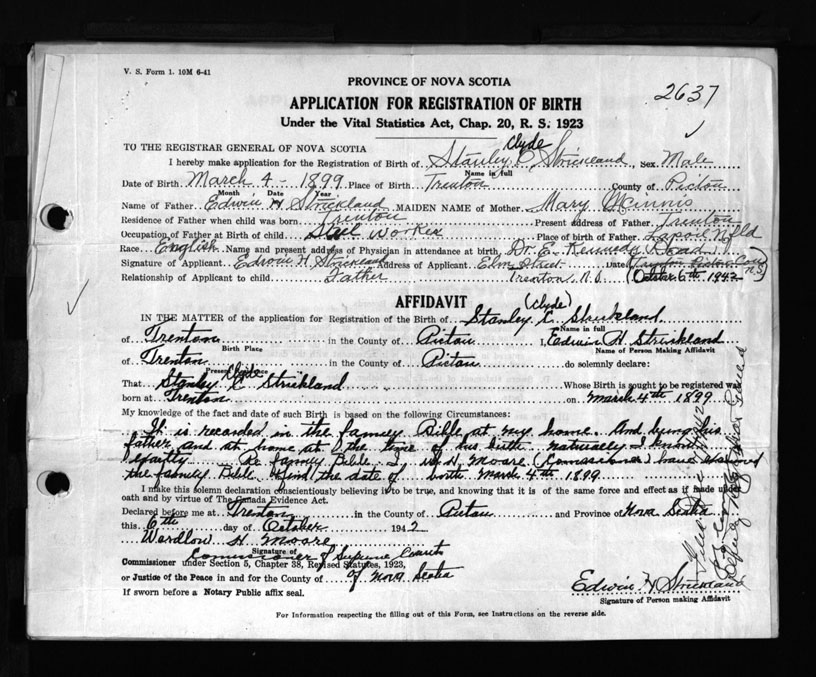 V. S. Form 1. 10M 6-41
PROVINCE OF NOVA SCOTIA
2637
APPLICATION FOR REGISTRATION OF BIRTH
Under the Vital Statistics Act, Chap. 20, R. S. 1923
TO THE REGISTRAR GENERAL OF NOVA SCOTIA
Clyde
I hereby make application for the Registration of Birth of Stanley C. Strickland, Sex Male
Name in full
Date of Birth March 4 - 1899 Place of Birth Trenton County of Pictou
Month Date Year
Name of Father Edwin H Strickland MAIDEN NAME of Mother Mary
Residence of Father when child was born Trenton Present address of Father Trenton
Occupation of Father at Birth of child Steel Worker Place of Birth of Father Nfld
Race English Name and present address of Physician in attendance at birth, Dr. E. Kennedy
Signature of Applicant Edwin H Strickland Address of Applicant Elm Street Date
Relationship of Applicant to child Father Trenton N.S. (October 6th 1942
N.S.)
AFFIDAVIT
(Clyde)
IN THE MATTER of the application for Registration of the Birth of Stanley C. Strickland
Name in full
of Trenton in the County of Pictou I, Edwin H Strickland
Birth Place Name of Person Making Affidavit
of Trenton in the County of Pictou do solemnly declare:
Present
Clyde
That Stanley C Strickland Whose Birth is sought to be registered was
born at Trenton on March 4th 1899
My knowledge of the fact and date of such Birth is based on the following Circumstances:
It is recorded in the family Bible at my home. And being his
father and at home at the time of his birth naturally I know
exactly Re family Bible I W. H. Moore (Commissioner) have
the family Bible find the date of birth March 4th 1899
I make this solemn declaration conscientiously believing it to be true, and knowing that it is of the same force and effect as if made under
oath and by virtue of The Canada Evidence Act.
Declared before me at Trenton in the County of Pictou and Province of Nova Scotia
this 6th day of October 1942
Wardlow H Moore
Signature of
Commissioner of Supreme Courts
Commissioner under Section 5, Chapter 38, Revised Statutes, 1923,
or Justice of the Peace in and for the County of of Nova Scotia
If sworn before a Notary Public affix seal.
Edwin H Strickland
Signature of Person making Affidavit
For Information respecting the filling out of this Form, see Instructions on the reverse side.
Deputy Registrar General